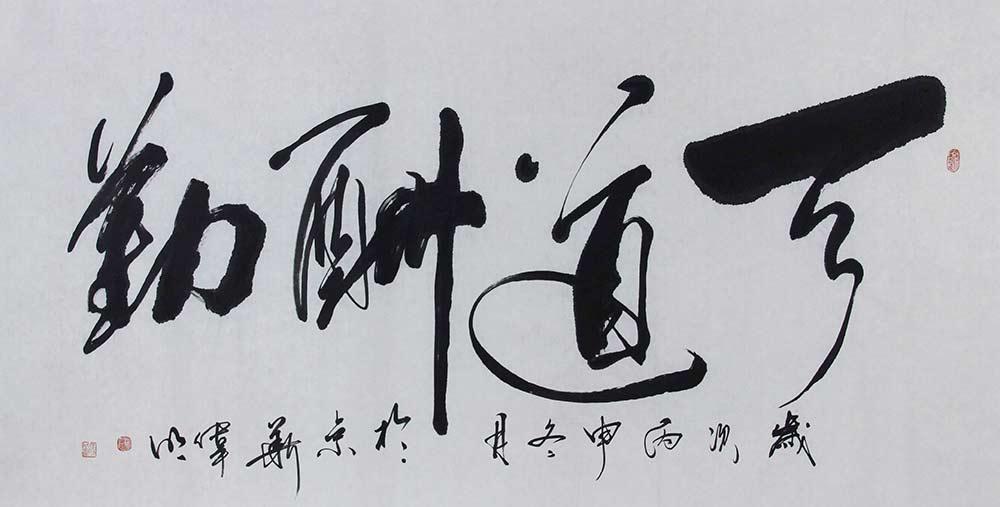 天道酬勤
歲次丙申冬月於京華偉